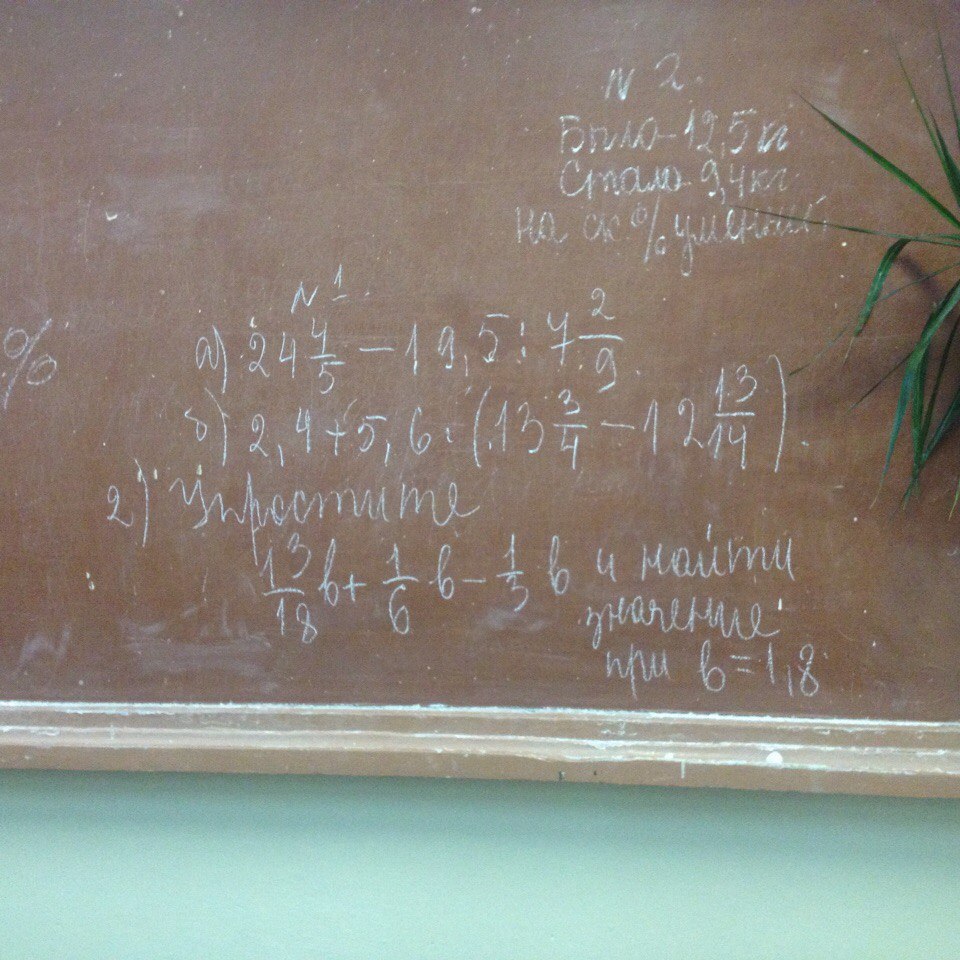 N 2.
Было 12,5 кг
Стало 9,4 кг
на ск % уменьш.
%
N 1.
а) 24 4/5 − 19,5 : 7 2/9.
б) 2,4 + 5,6 : (13 3/4 − 12 13/14).
2) Упростите
13/18 в + 1/6 в − 1/3 в и найти
значение
при в = 1,8